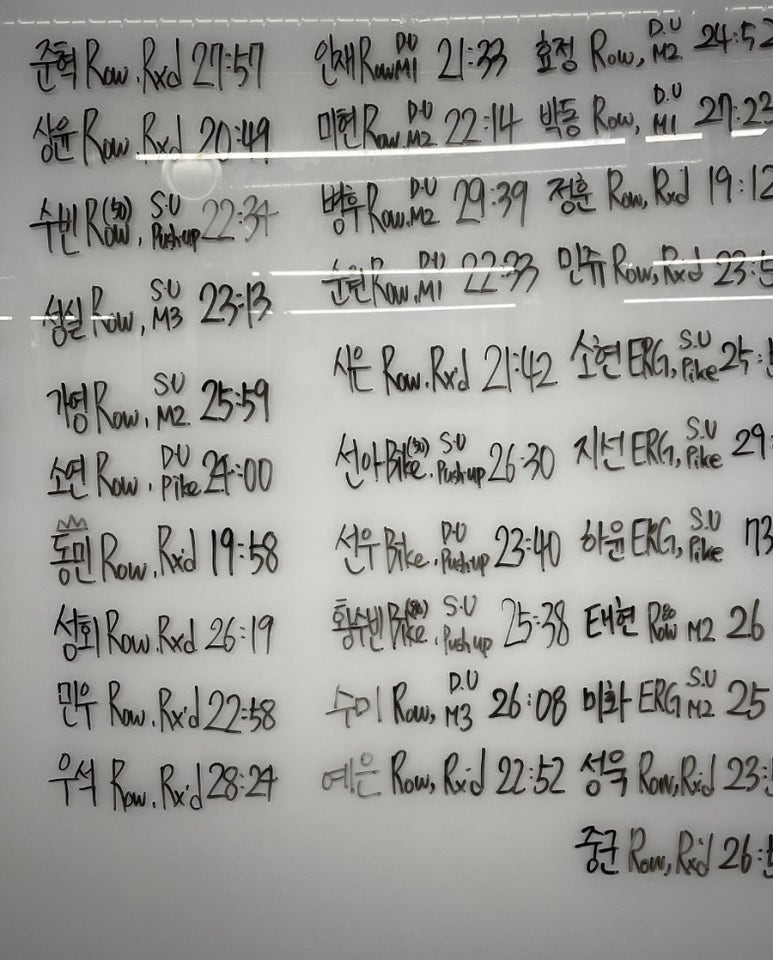 준혁 Row. Rxd 27:57
상윤 Row. Rxd 20:49
수빈 Row(50), S.U Pushup 22:34
성실 Row, S.U M3 23:13
가영 Row, S.U M2 25:59
소연 Row, D.U Pike 24:00
동민 Row, Rx'd 19:58
성희 Row. Rxd 26:19
민우 Row. Rx'd 22:58
우석 Row. Rx'd 28:24
인재 Row D.U M1 21:33
미현 Row. D.U M2 22:14
병후 Row. D.U M2 29:39
순현 Row. D.U M1 22:33
시은 Row. Rx'd 21:42
선아 Bike(50). S.U Pushup 26:30
선우 Bike. D.U Pushup 23:40
황수빈 Bike. S.U Pushup 25:38
수미 Row, D.U M3 26:08
예은 Row, Rx'd 22:52
효정 Row, D.U M2 24:52
박동 Row, D.U M1 27:23
정훈 Row, Rxd 19:12
민쥬 Row, Rxd 23:5
소현 ERG, S.U Pike 25:
지선 ERG, S.U Pike 29:
하윤 ERG, S.U Pike
태현 Row M2 26
미화 ERG S.U M2 25
성욱 Row, Rx'd 23:
중군 Row, Rx'd 26: